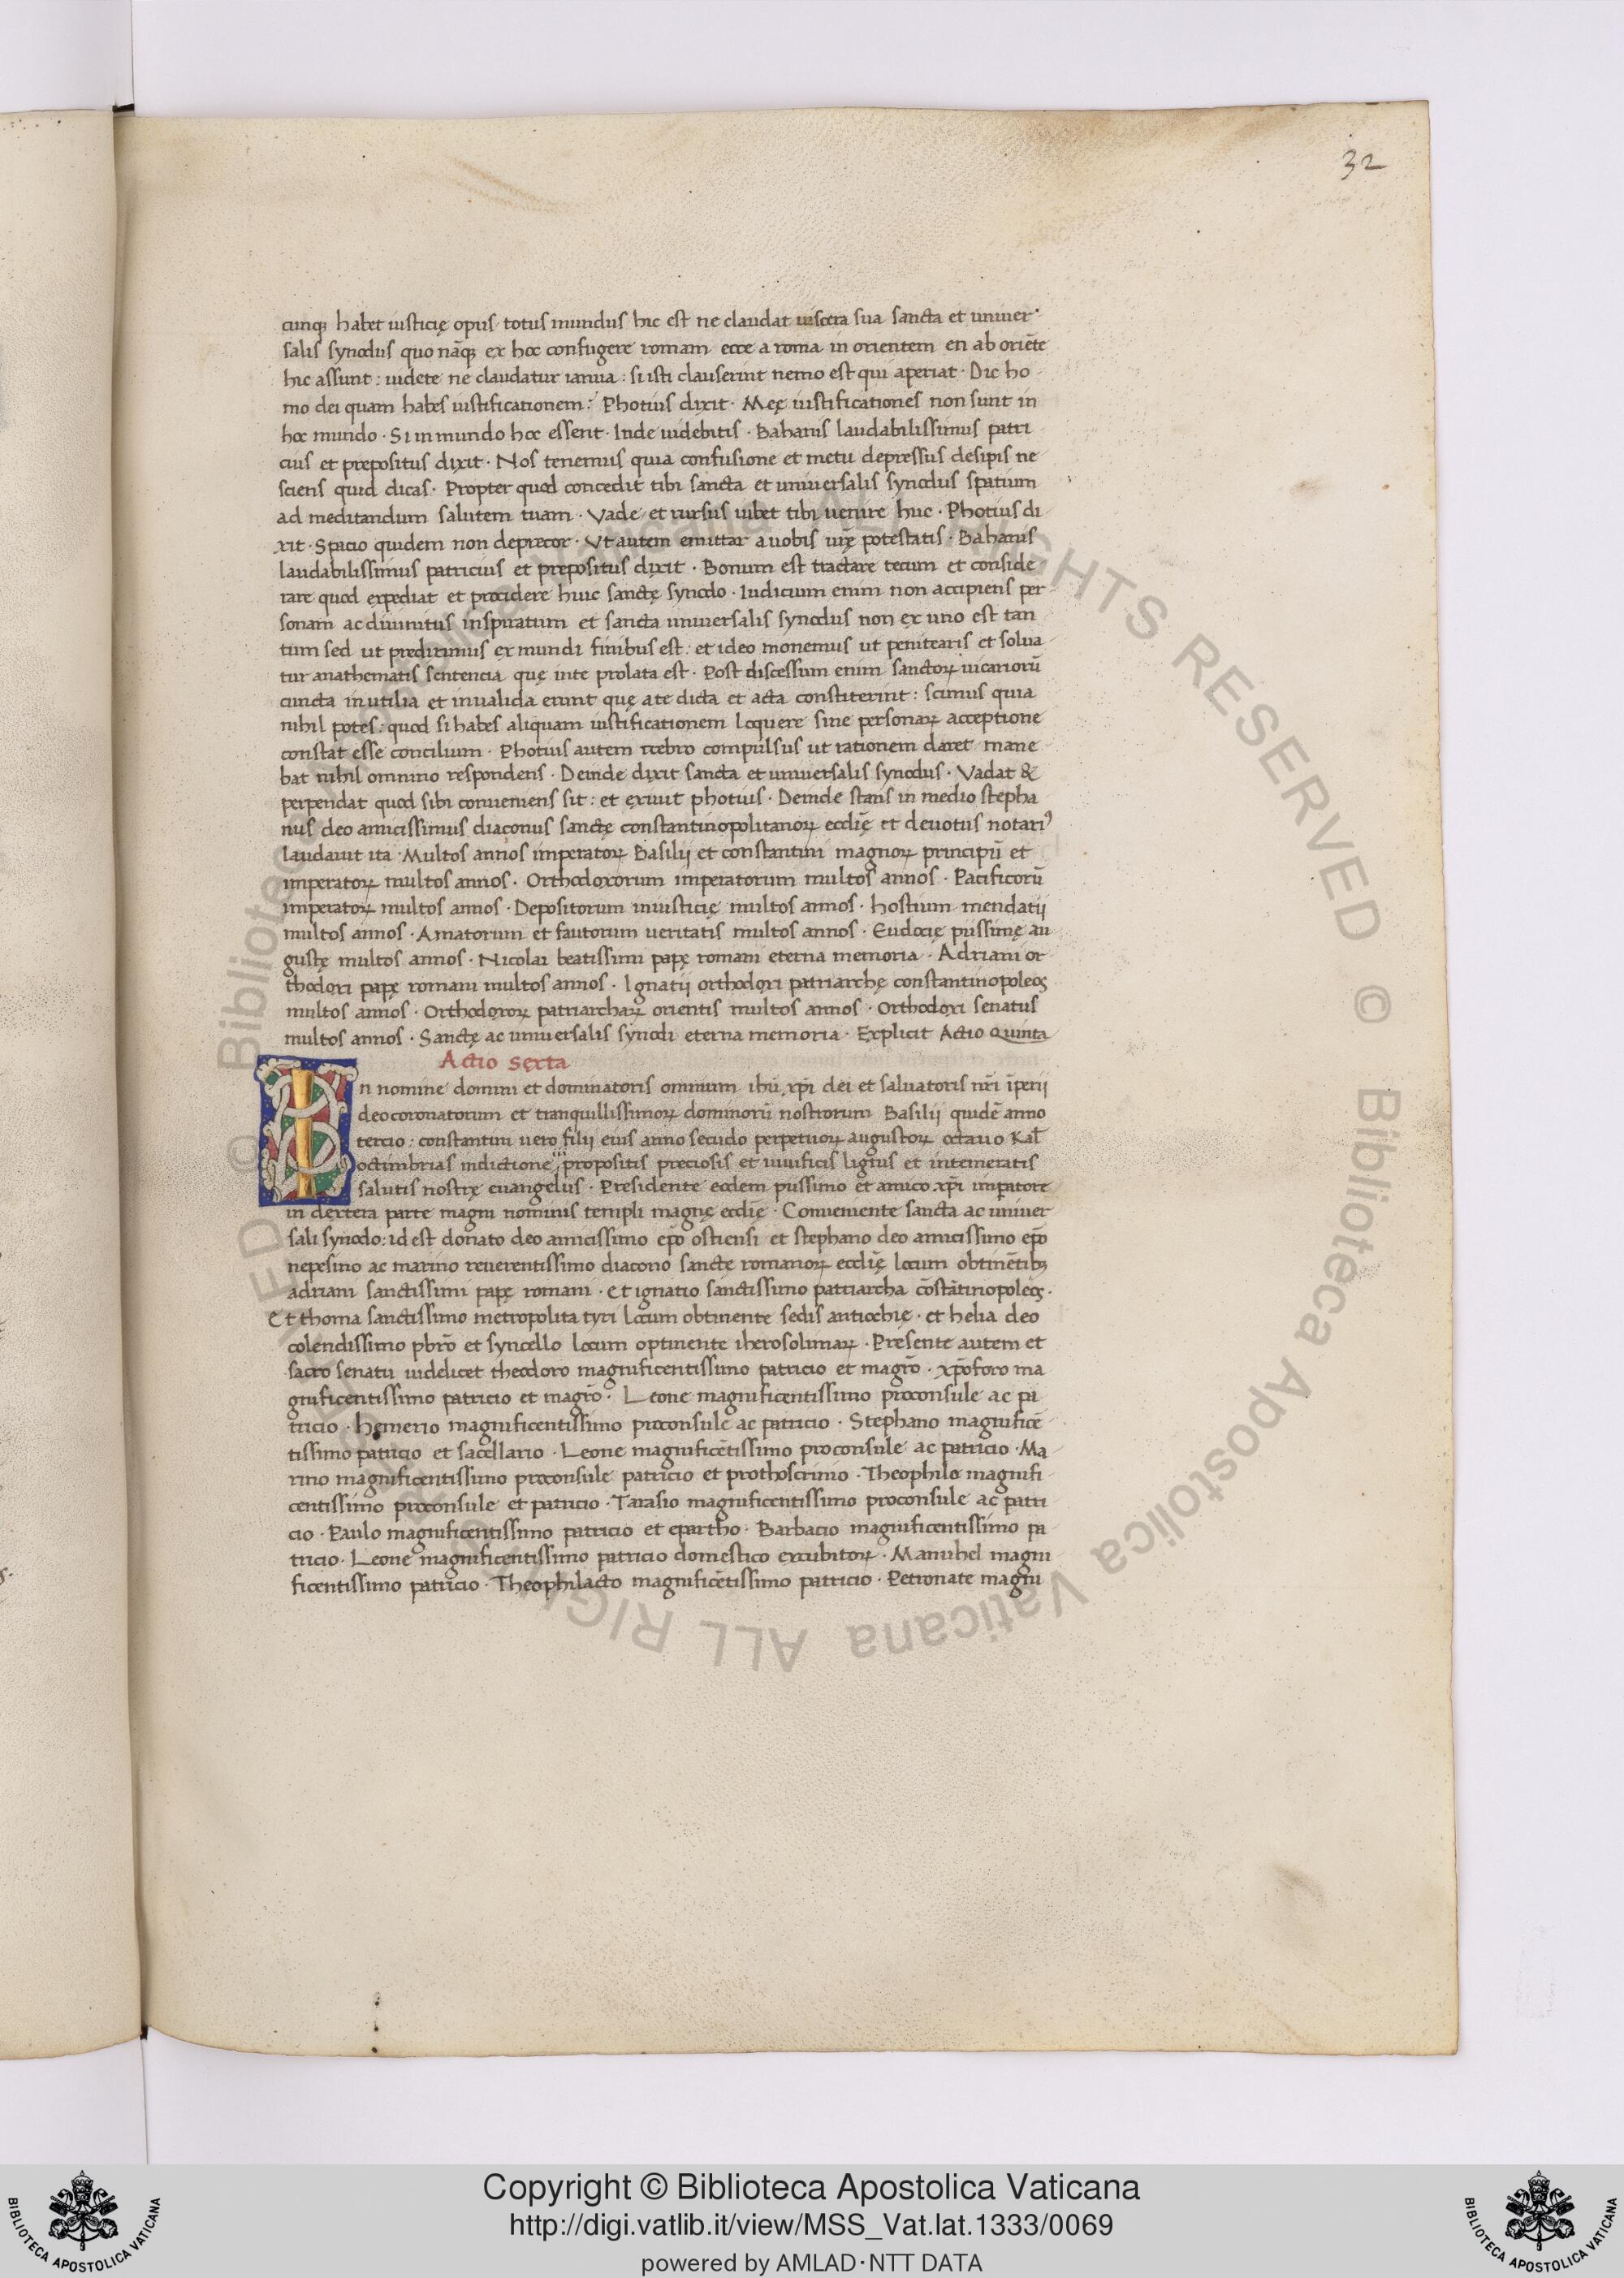 32
cunqꝫ habet iusticię opus · totus mundus hic est ne claudat uiscera sua sancta et uniuer
salis synodus quo nāqꝫ ex hoc confugere romam ecce a roma in orientem en ab oriēte
hic assunt : uidete ne claudatur ianua : si isti clauserint nemo est qui aperiat · Dic ho
mo dei quam habes iustificationem : Photius dixit · Meę iustificationes non sunt in
hoc mundo · Si in mundo hoc essent · Inde uidebitis · Bahanis laudabilissimus patri
cius et prepositus dixit · Nos tenemus quia confusione et metu depressus desipis ne
sciens quid dicas · Propter quod concedit tibi sancta et uniuersalis synodus spatium
ad meditandum salutem tuam · Vade et rursus iubet tibi uenire huc · Photius di
xit · Spacio quidem non deprecor · Vt autem emittar a uobis urę potestatis · Bahanis
laudabilissimus patricius et prepositus dixit · Bonum est tractare tecum et conside
rare quod expediat et procidere huic sanctę synodo · Iudicium enim non accipiens per
sonam ac diuinitus inspiratum et sancta uniuersalis synodus non ex uno est tan
tum sed ut prediximus ex mundi finibus est : et ideo monemus ut penitearis et solua
tur anathematis sentencia quę in te prolata est · Post discessum enim sanctoꝝ uicariorū
cuncta inutilia et inualida erunt quę a te dicta et acta constiterint : scimus quia
nihil potes : quod si habes aliquam iustificationem loquere sine personaꝝ acceptione
constat esse concilium · Photius autem crebro compulsus ut rationem daret mane
bat nihil omnino respondens · Deinde dixit sancta et uniuersalis synodus · Vadat &
perpendat quod sibi conueniens sit : et exiuit photius · Deinde stans in medio stepha
nus deo amicissimus diaconus sanctę constantinopolitanoꝝ ecclīę et deuotus notariꝰ
laudauit ita · Multos annos imperatoꝝ Basilij et constantini magnoꝝ principū et
imperatoꝝ multos annos · Orthodoxorum imperatorum multos annos · Pacificorū
imperatoꝝ multos annos · Depositorum iniusticię multos annos · hostium mendatij
multos annos · Amatorum et fautorum ueritatis multos annos · Eudocię piissimę au
gustę multos annos · Nicolai beatissimi papę romani eterna memoria · Adriani or
thodoxi papę romani multos annos · Ignatij orthodoxi patriarchę constantinopoleos
multos annos · Orthodoxoꝝ patriarchaꝝ orientis multos annos · Orthodoxi senatus
multos annos · Sanctę ac uniuersalis synodi eterna memoria · Explicit Actio Quinta
Actio Sexta
In nomine domini et dominatoris omnium ihū xp̄i dei et saluatoris nr̄i īperij
deo coronatorum et tranquillissimoꝝ dominorū nostrorum Basilij quidē anno
tercio : constantini uero filij eius anno secūdo perpetuoꝝ augustoꝝ octauo Kal̄
octimbrias indictione iii propositis preciosis et uiuificis lignis et intemeratis
salutis nostrę euangeliis · Presidente eodem piissimo et amico xp̄i imp̄atore
in dextera parte magni nominis templi magnę ecclīę · Conueniente sancta ac uniuer
sali synodo : id est donato deo amicissimo ep̄o ostiensi et stephano deo amicissimo ep̄o
nepesino ac marino reuerentissimo diacono sanctę romanoꝝ ecclīę locum obtinētibꝫ
adriani sanctissimi papę romani · Et ignatio sanctissimo patriarcha cōstātinopoleos ·
Et thoma sanctissimo metropolita tyri locum obtinente sedis antiochię · et helia deo
colendissimo pbr̄o et syncello locum optinente iherosolimaꝝ · Presente autem et
sacro senatu uidelicet theodoro magnificentissimo patricio et magr̄o · xp̄oforo ma
gnificentissimo patricio et magr̄o · Leone magnificentissimo proconsule ac pa
tricio · hemerio magnificentissimo proconsule ac patricio · Stephano magnificē
tissimo patricio et sacellario · Leone magnificētissimo proconsule ac patricio · Ma
rino magnificentissimo proconsule patricio et prothoscrinio · Theophilo magnifi
centissimo proconsule et patricio · Tarasio magnificentissimo proconsule ac patri
cio · Paulo magnificentissimo patricio et epartho · Barbacio magnificentissimo pa
tricio · Leone magnificentissimo patricio domestico excubitoꝝ · Manuhel magni
ficentissimo patricio · Theophilacto magnificētissimo patricio · Petronate magni
Copyright © Biblioteca Apostolica Vaticana
http://digi.vatlib.it/view/MSS_Vat.lat.1333/0069
powered by AMLAD·NTT DATA
BIBLIOTECA APOSTOLICA VATICANA
BIBLIOTECA APOSTOLICA VATICANA
© Biblioteca Apostolica Vaticana ALL RIGHTS RESERVED © Biblioteca Apostolica Vaticana ALL RIGHTS RESERVED